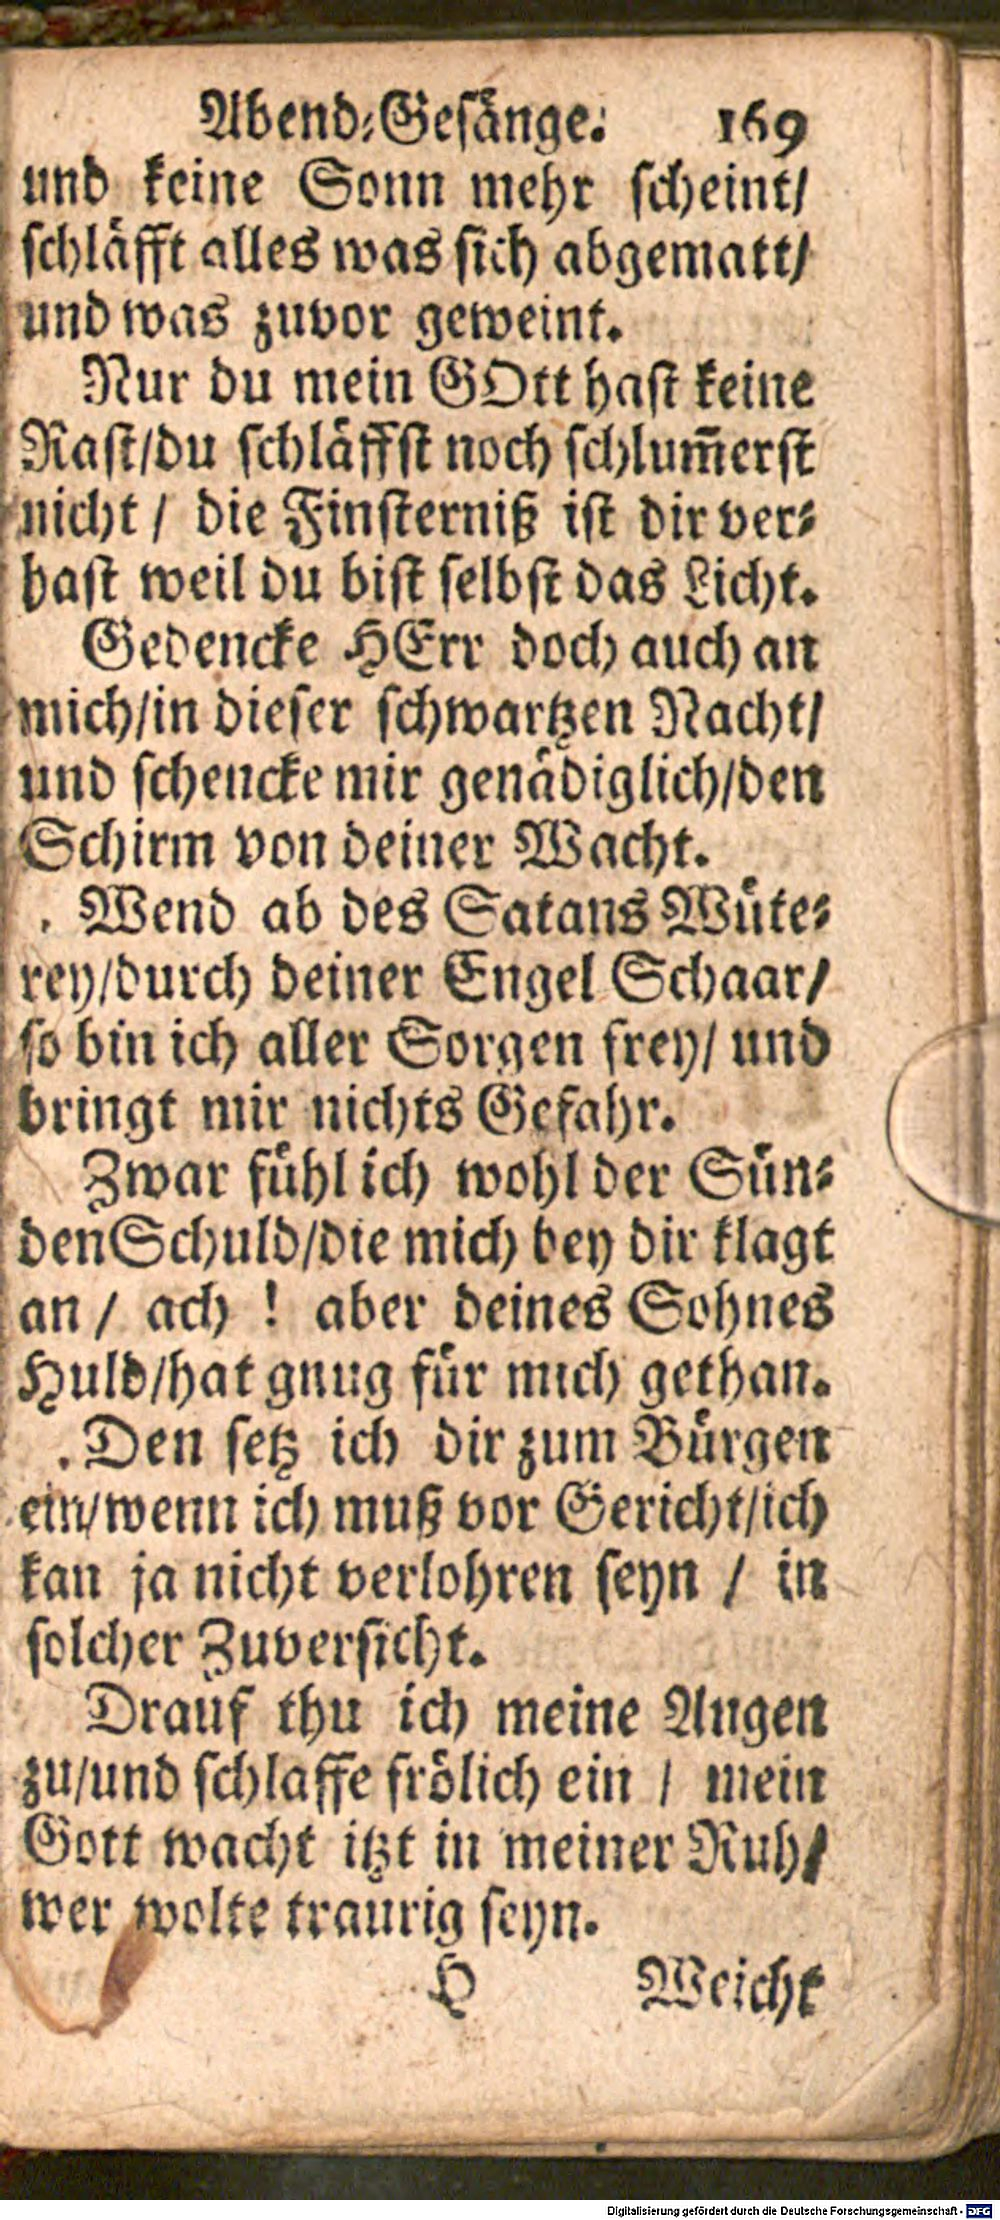 Abend⸗Gesänge. 169
und keine Sonn mehr scheint/
schläfft alles was sich abgematt/
und was zuvor geweint.
Nur du mein GOtt hast keine
Rast/du schläffst noch schlum̅erst
nicht / die Finsterniß ist dir ver⸗
hast weil du bist selbst das Licht.
Gedencke HErr doch auch an
mich/in dieser schwartzen Nacht/
und schencke mir genädiglich/den
Schirm von deiner Wacht.
Wend ab des Satans Wüte⸗
rey/durch deiner Engel Schaar/
so bin ich aller Sorgen frey/ und
bringt mir nichts Gefahr.
Zwar fühl ich wohl der Sün⸗
den Schuld/die mich bey dir klagt
an / ach ! aber deines Sohnes
Huld/hat gnug für mich gethan.
Den setz ich dir zum Bürgen
ein/wenn ich muß vor Gericht/ich
kan ja nicht verlohren seyn / in
solcher Zuversicht.
Drauf thu ich meine Augen
zu/und schlaffe frölich ein / mein
Gott wacht itzt in meiner Ruh/
wer wolte traurig seyn.
H Weicht
Digitalisierung gefördert durch die Deutsche Forschungsgemeinschaft - DFG